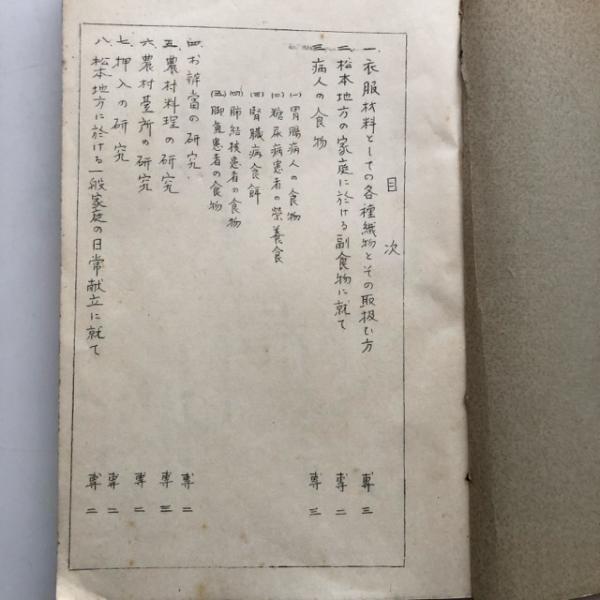 目次
一、衣服材料としての各種織物とその取扱ひ方 専三
二、松本地方の家庭に於ける副食物に就て 専二
三、病人の食物 専三
(一)胃腸病人の食物
(二)糖尿病患者の栄養食
(三)腎臓病食餌
(四)肺結核患者の食物
(五)脚気患者の食物
四、お辨當の研究 専二
五、農村料理の研究 専三
六、農村臺所の研究 専二
七、押入の研究 専二
八、松本地方に於ける一般家庭の日常献立に就て 専二